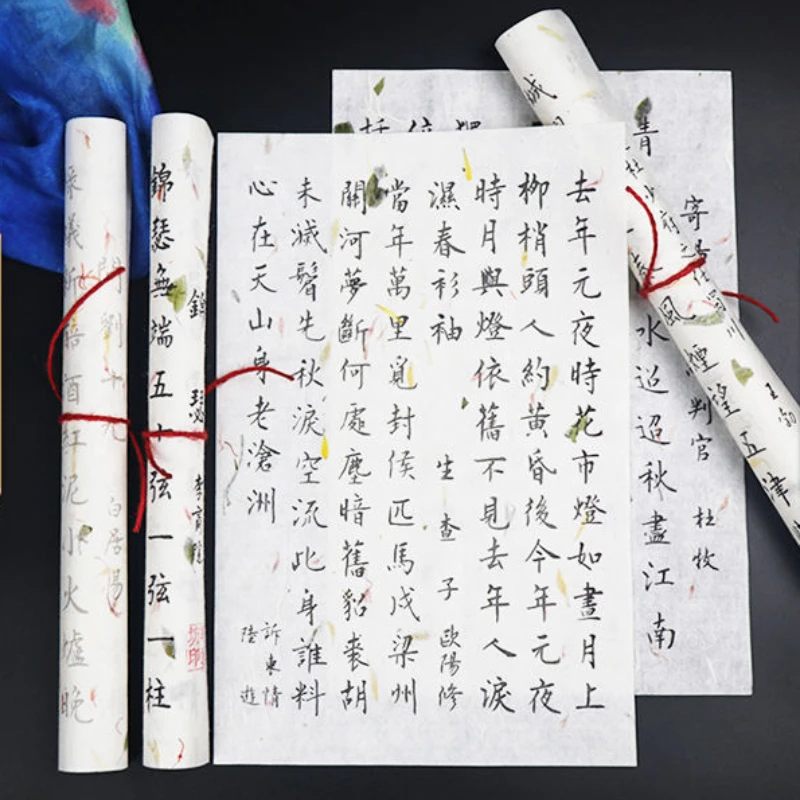 寄
判官 杜牧
青
水迢迢秋盡江南
杜少府之任蜀川 王勃
風煙望五津
去年元夜時花市燈如晝月上
柳梢頭人約黃昏後今年元夜
時月與燈依舊不見去年人淚
濕春衫袖 生查子 歐陽修
當年萬里覓封侯匹馬戍梁州
關河夢斷何處塵暗舊貂裘胡
未滅鬢先秋淚空流此身誰料
心在天山身老滄洲
訴衷情
陸遊
錦瑟 李商隱
錦瑟無端五十弦一弦一柱
問劉十九 白居易
蟻新醅酒紅泥小火爐晚